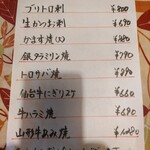 ブリトロ刺 ¥800
生かつお刺 ¥690
かます焼(大) ¥780
銀ダラミリン焼 ¥790
トロサバ焼 ¥890
仙台牛にぎり2ケ ¥660
牛ハラミ焼 ¥690
山形牛もみ焼 ¥1080